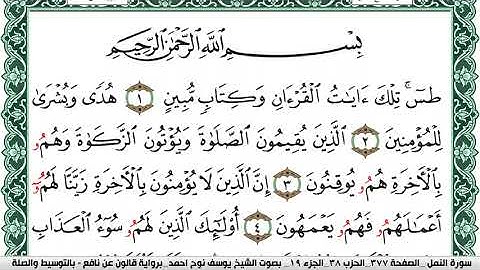 بِسْمِ اللَّهِ الرَّحْمَٰنِ الرَّحِيمِ
طسٓۚ تِلْكَ ءَايَٰتُ الْقُرْءَانِ وَكِتَابٖ مُّبِينٍ ١ هُدٗى وَبُشْرَىٰ
لِلْمُؤْمِنِينَ ٢ الَّذِينَ يُقِيمُونَ الصَّلَوٰةَ وَيُؤْتُونَ الزَّكَوٰةَ وَهُمُۥ
بِالْأَخِرَةِ هُمُۥ يُوقِنُونَ ٣ إِنَّ الَّذِينَ لَا يُؤْمِنُونَ بِالْأَخِرَةِ زَيَّنَّا لَهُمُۥٓ
أَعْمَٰلَهُمُۥ فَهُمُۥ يَعْمَهُونَ ٤ أُوْلَٰٓئِكَ الَّذِينَ لَهُمُۥ سُوٓءُ الْعَذَابِ
سورة النمل_الصفحة ٣٧٧_الحزب ٣٨_الجزء ١٩_ بصوت الشيخ يوسف نوح احمد_برواية قالون عن نافع - بالتوسيط والصلة